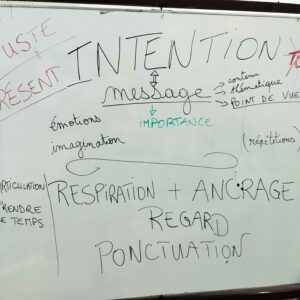 USTE
RÉSENT
INTENTION
message
contenu
thématique
POINT DE VUE
IMPORTANCE
émotions
imagination
(répétitions
RTICULATION
RENDRE
E TEMPS
RESPIRATION + ANCRAGE
REGARD
PONCTUATION